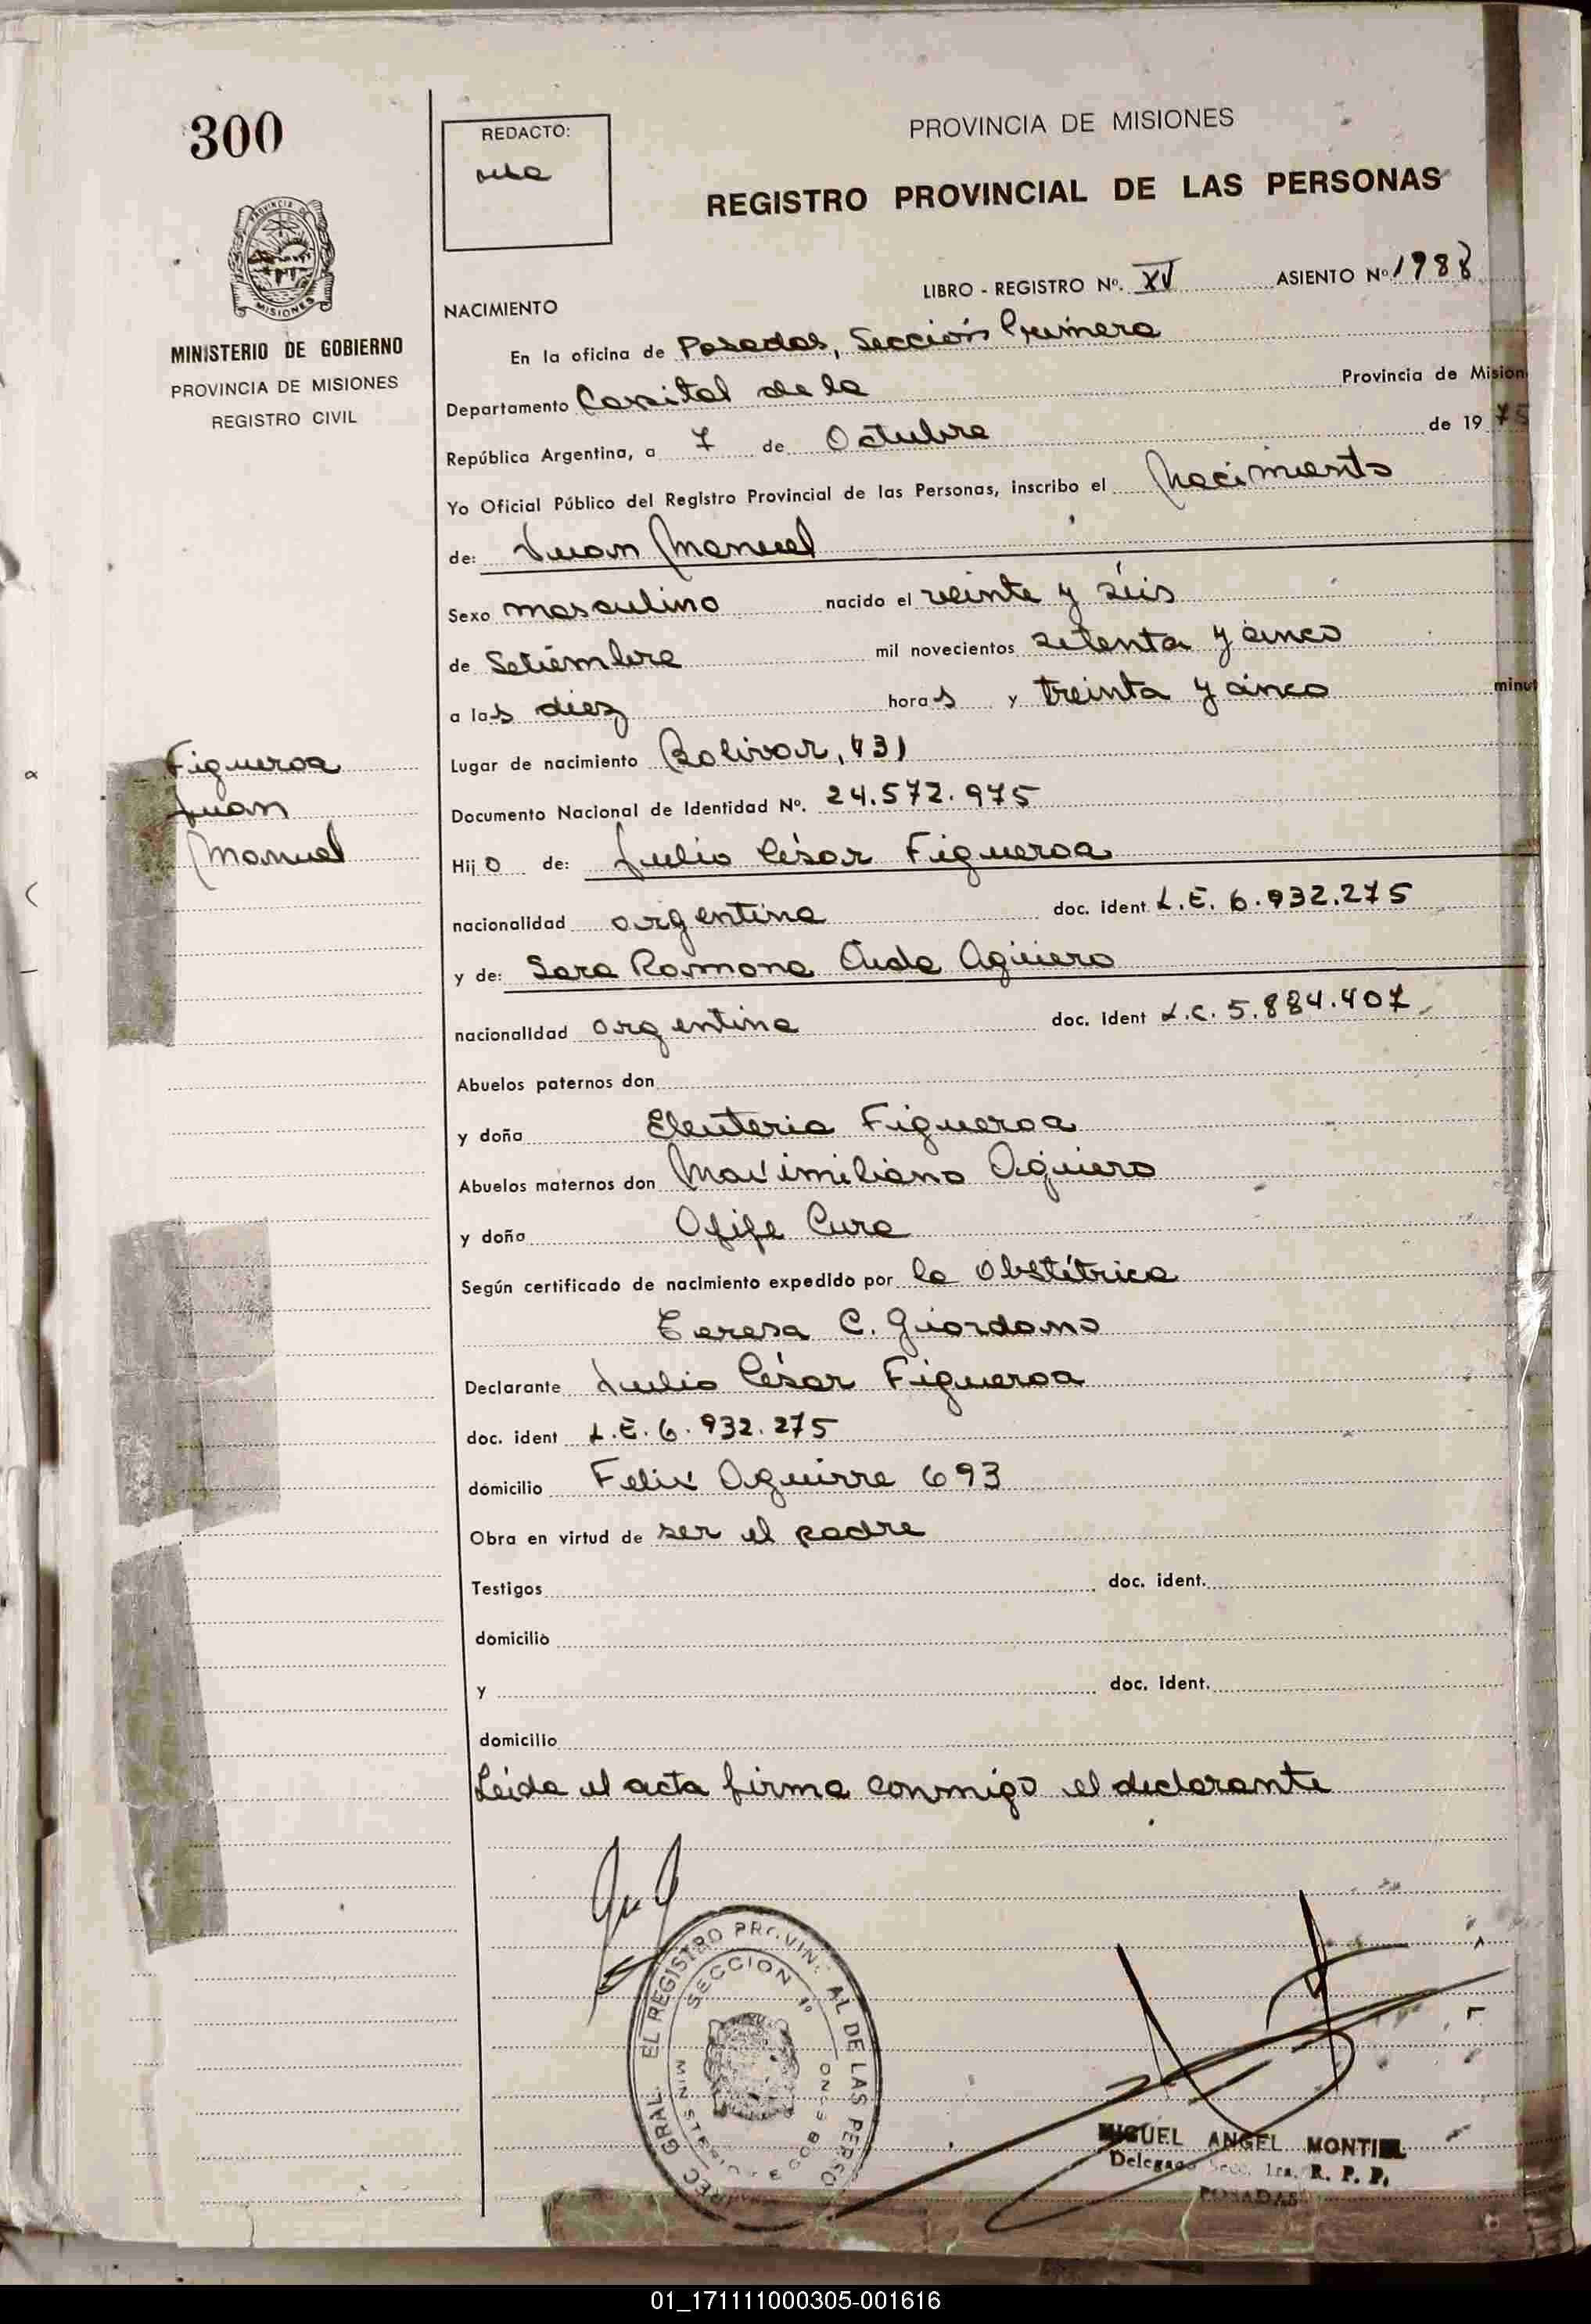 300
REDACTO:
PROVINCIA DE MISIONES
REGISTRO PROVINCIAL DE LAS PERSONAS
PROVINCIA DE
MISIONES
MINISTERIO DE GOBIERNO
PROVINCIA DE MISIONES
REGISTRO CIVIL
LIBRO - REGISTRO Nº. XV ASIENTO Nº 1988
NACIMIENTO
En la oficina de Posadas, Sección Primera
Departamento Capital de la Provincia de Mision
República Argentina, a 7 de Octubre de 1975
Yo Oficial Público del Registro Provincial de las Personas, inscribo el Nacimiento
de: Juan Manuel
Sexo masculino nacido el veinte y seis
de Setiembre mil novecientos setenta y cinco
a las diez horas y treinta y cinco minut
Lugar de nacimiento Bolivar,
Documento Nacional de Identidad Nº. 24.572.975
Figueroa
Juan
Manuel
Hijo de: Julio César Figueroa
nacionalidad argentina doc. ident L.E. 6.932.275
y de: Sara Ramona Aguiero
nacionalidad argentina doc. ident L.C. 5.884.407
Abuelos paternos don
y doña Eleuteria Figueroa
Abuelos maternos don Maximiliano Aguiero
y doña Ofife Cura
Según certificado de nacimiento expedido por la Obstétrica
Teresa C. Giordano
Declarante Julio César Figueroa
doc. ident L.E. 6.932.275
domicilio Felix Aguirre 693
Obra en virtud de ser el padre
Testigos doc. ident.
domicilio
y doc. ident.
domicilio
Leida el acta firma conmigo el declarante
GRAL. EL REGISTRO PROVIN AL DE LAS PERSO
SECCION 1º
MIGUEL ANGEL MONTIEL
Delegado Secc. 1ra. R. P. P.
POSADAS
01_171111000305-001616